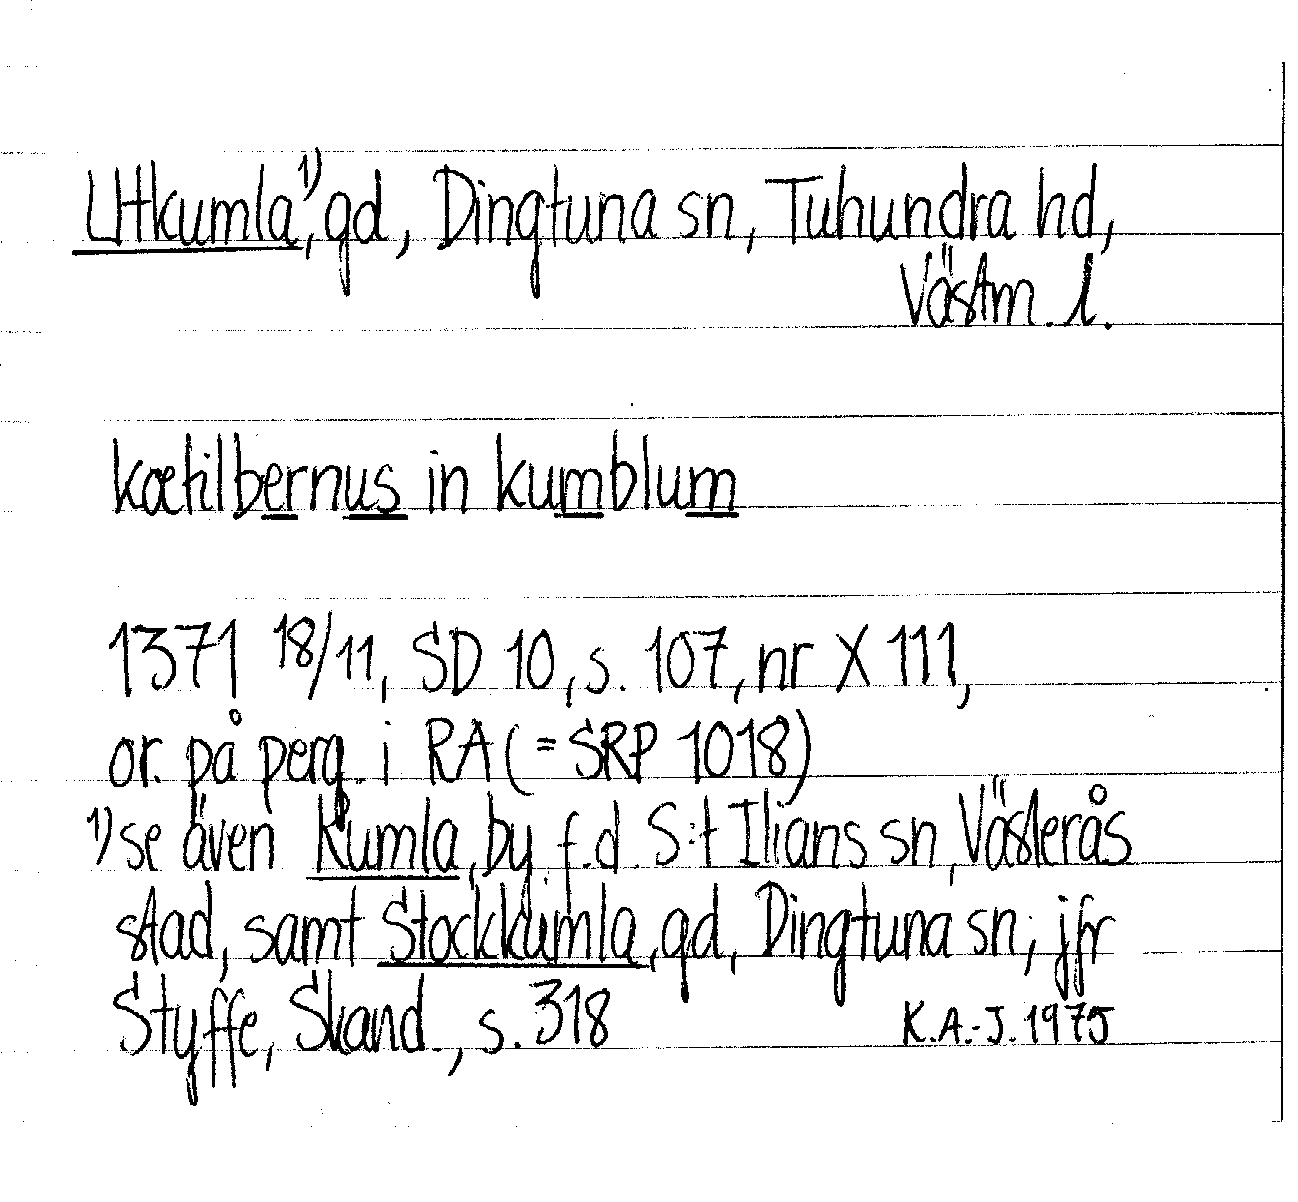 Utkumla¹⁾, gd, Dingtuna sn, Tuhundra hd,
Västm. l.
kætilbernus in kumblum
1371 18/11, SD 10, s. 107, nr X 111,
or. på perg. i RA (= SRP 1018)
¹⁾ se även Kumla, by, f.d. S:t Ilians sn, Västerås
stad, samt Stockkumla, gd, Dingtuna sn; jfr
Styffe, Skand., s. 318
K.A.-J. 1975